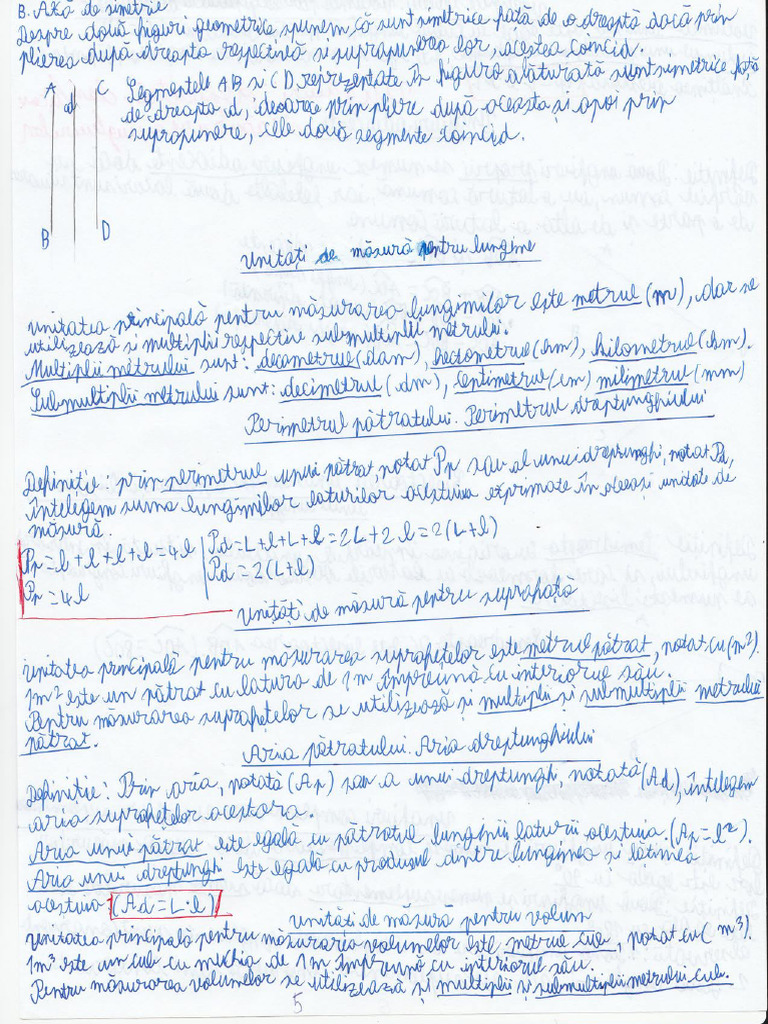 B. Axă de simetrie
Despre două figuri geometrice spunem că sunt simetrice față de o dreaptă dacă prin
plierea după dreapta respectivă și suprapunerea lor, acestea coincid.
A d C
Segmentele AB și CD, reprezentate în figura alăturată sunt simetrice față
de dreapta d, deoarece prin pliere după aceasta și apoi prin
suprapunere, cele două segmente coincid.
B D
Unități de măsură pentru lungime
Unitatea principală pentru măsurarea lungimilor este metrul (m), dar se
utilizează și multiplii respectiv submultiplii metrului.
Multiplii metrului sunt: decametrul (dam), hectometrul (hm), kilometrul (km).
Submultiplii metrului sunt: decimetrul (dm), centimetrul (cm) milimetrul (mm)
Perimetrul pătratului. Perimetrul dreptunghiului
Definiție: prin perimetrul unui pătrat notat Pp sau al unui dreptunghi, notat Pd,
înțelegem suma lungimilor laturilor acestuia exprimate în aceeași unitate de
măsură
Pp = l + l + l + l = 4l Pd = L + l + L + l = 2L + 2l = 2(L + l)
Pp = 4l Pd = 2(L + l)
Unități de măsură pentru suprafață
Unitatea principală pentru măsurarea suprafețelor este metrul pătrat, notat cu (m²).
1m² este un pătrat cu latura de 1m împreună cu interiorul său.
Pentru măsurarea suprafețelor se utilizează și multiplii și submultiplii metrului
pătrat.
Aria pătratului. Aria dreptunghiului
Definiție: Prin aria, notată (Ap) sau a unui dreptunghi, notată (Ad), înțelegem
aria suprafețelor acestora
Aria unui pătrat este egală cu pătratul lungimii laturii acestuia. (Ap = l²).
Aria unui dreptunghi este egală cu produsul dintre lungimea și lățimea
acestuia (Ad = L · l)
Unități de măsura pentru volum
Unitatea principală pentru măsurarea volumelor este metrul cub, notat cu (m³).
1m³ este un cub cu muchia de 1m împreună cu interiorul său.
Pentru măsurarea volumelor se utilizează și multiplii și submultiplii metrului cub.
5